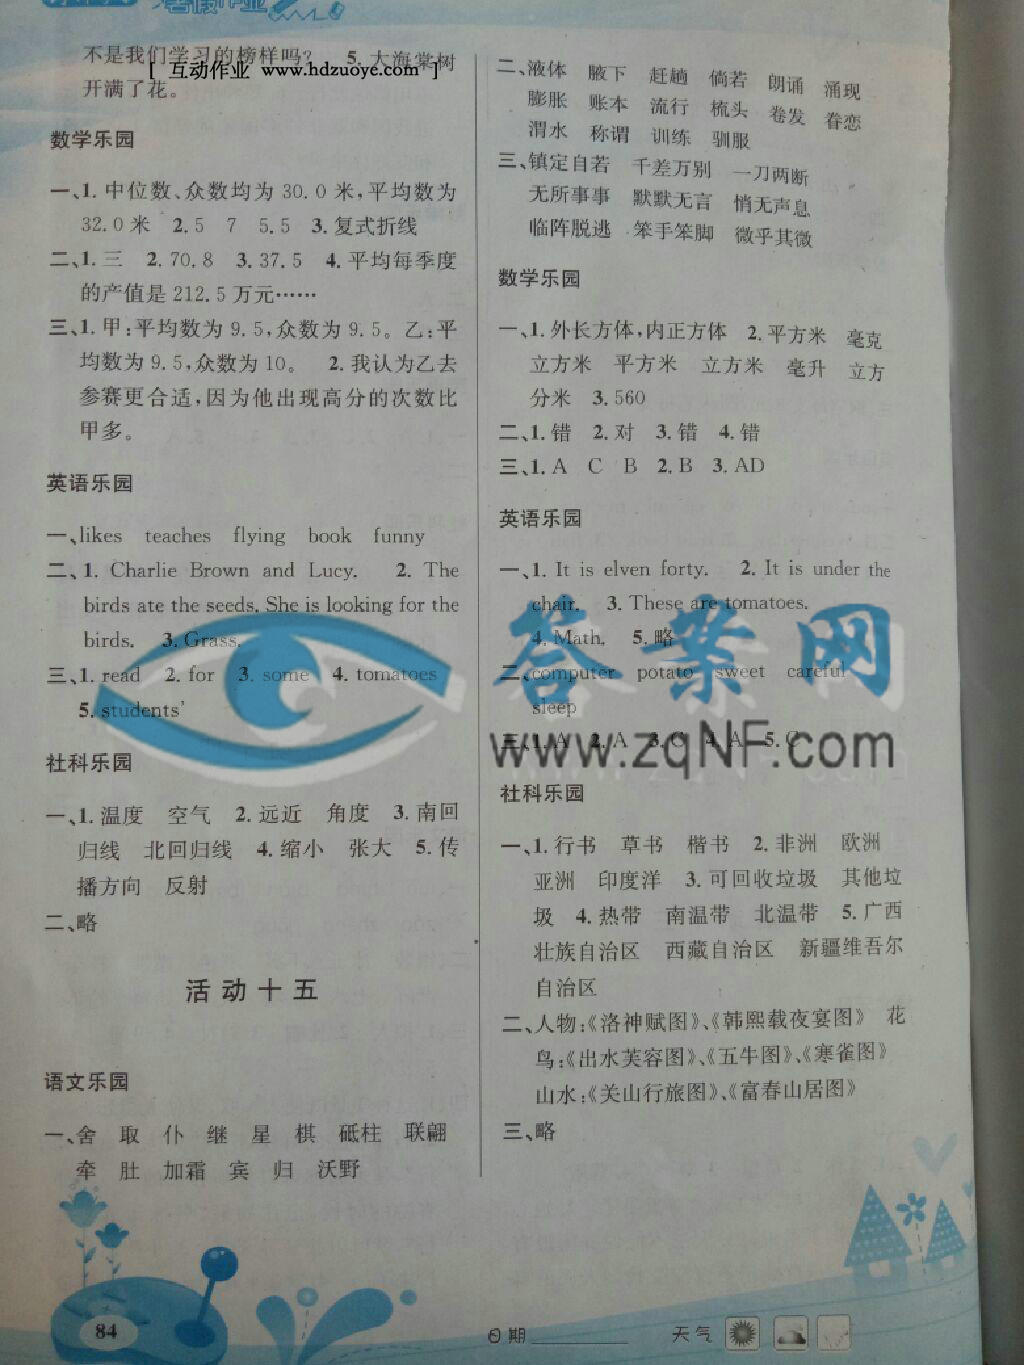 暑假作业
不是我们学习的榜样吗？ 5. 大海棠树
[ 互动作业 www.hdzuoye.com ]
开满了花。
数学乐园
一、1. 中位数、众数均为 30.0 米，平均数为
32.0 米 2. 5 7 5.5 3. 复式折线
二、1. 三 2. 70.8 3. 37.5 4. 平均每季度
的产值是 212.5 万元……
三、1. 甲：平均数为 9.5，众数为 9.5。乙：平
均数为 9.5，众数为 10。 2. 我认为乙去
参赛更合适，因为他出现高分的次数比
甲多。
英语乐园
一、likes teaches flying book funny
二、1. Charlie Brown and Lucy. 2. The
birds ate the seeds. She is looking for the
birds. 3. Grass.
三、1. read 2. for 3. some 4. tomatoes
5. students'
社科乐园
一、1. 温度 空气 2. 远近 角度 3. 南回
归线 北回归线 4. 缩小 张大 5. 传
播方向 反射
二、略
活动十五
语文乐园
一、舍 取 仆 继 星 棋 砥柱 联翩
牵 肚 加霜 宾 归 沃野
二、液体 腋下 赶趟 倘若 朗诵 涌现
膨胀 账本 流行 梳头 卷发 眷恋
渭水 称谓 训练 驯服
三、镇定自若 千差万别 一刀两断
无所事事 默默无言 悄无声息
临阵脱逃 笨手笨脚 微乎其微
数学乐园
一、1. 外长方体，内正方体 2. 平方米 毫克
立方米 平方米 立方米 毫升 立方
分米 3. 560
二、1. 错 2. 对 3. 错 4. 错
三、1. A C B 2. B 3. AD
英语乐园
一、1. It is elven forty. 2. It is under the
chair. 3. These are tomatoes.
4. Math. 5. 略
二、computer potato sweet careful
sleep
三、1. A 2. A 3. C 4. A 5. C
答案网
www.zqNF.com
社科乐园
一、1. 行书 草书 楷书 2. 非洲 欧洲
亚洲 印度洋 3. 可回收垃圾 其他垃
圾 4. 热带 南温带 北温带 5. 广西
壮族自治区 西藏自治区 新疆维吾尔
自治区
二、人物：《洛神赋图》、《韩熙载夜宴图》 花
鸟：《出水芙蓉图》、《五牛图》、《寒雀图》
山水：《关山行旅图》、《富春山居图》
三、略
84
日期
天气